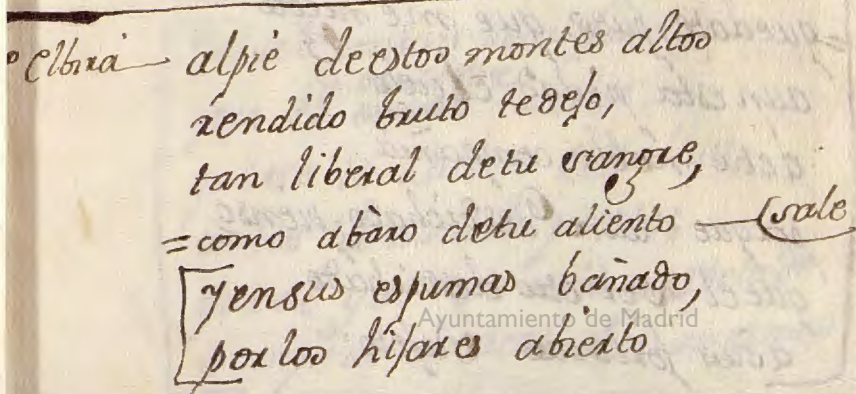 Elbira alpie deestos montes altos
rendido bruto tedejo,
tan liberal detu sangre,
= como abaro detu aliento — (sale
yensus espumas bañado,
por los hijares abierto
Ayuntamiento de Madrid